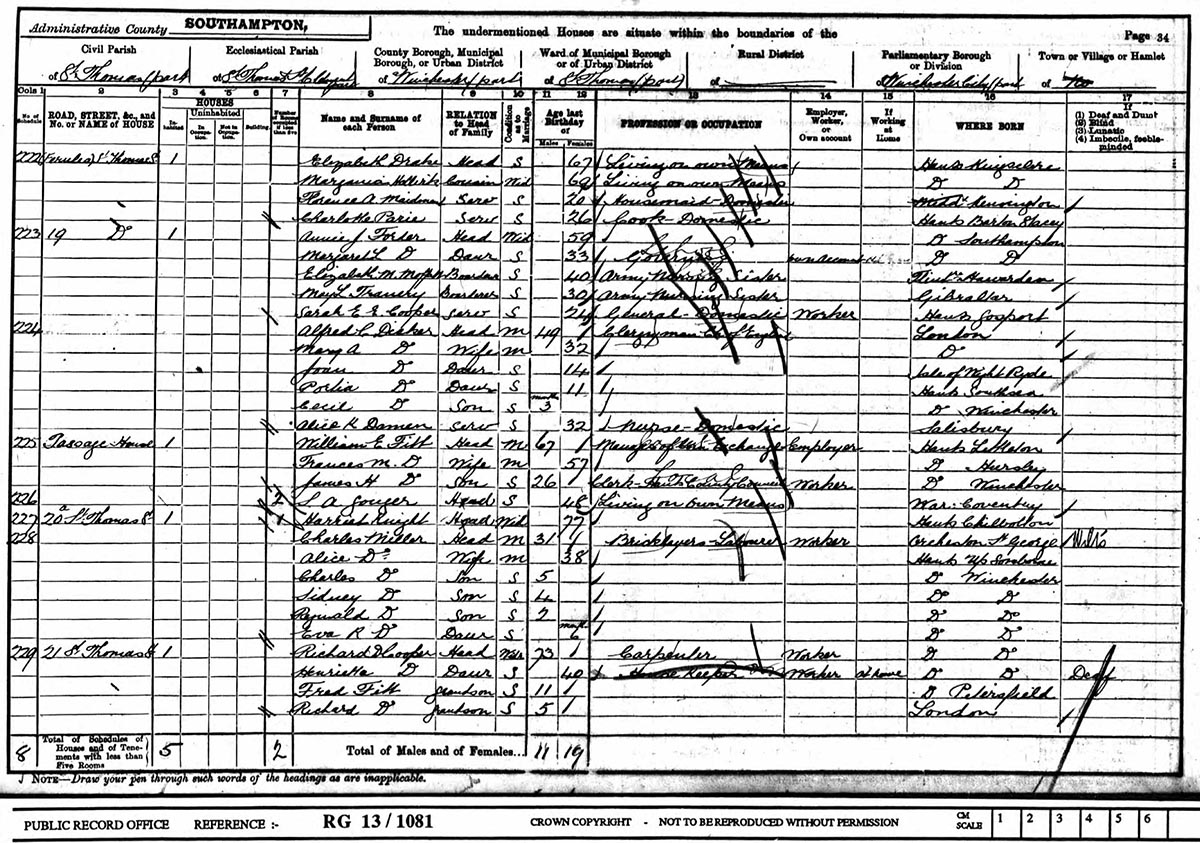 Administrative County SOUTHAMPTON, The undermentioned Houses are situate within the boundaries of the Page 34
Civil Parish Ecclesiastical Parish County Borough, Municipal Borough, or Urban District Ward of Municipal Borough or of Urban District Rural District Parliamentary Borough or Division Town or Village or Hamlet
of St Thomas (part of St Thomas of Winchester (part of St Thomas (part) of of Winchester City (part of
Cols 1 2 3 4 5 6 7 8 9 10 11 12 13 14 15 16 17
No. of Schedule ROAD, STREET, &c., and No. or NAME of HOUSE HOUSES Inhabited Uninhabited In Occupation Not in Occupation Building Name and Surname of each Person RELATION to Head of Family Condition as to Marriage Age last Birthday of Males Females PROFESSION OR OCCUPATION Employer, Worker, or Own account If Working at Home WHERE BORN If (1) Deaf and Dumb (2) Blind (3) Lunatic (4) Imbecile, feeble-minded
222 St Thomas St 1 Elizabeth Drake Head S 67 Living on own Means Hants Kingsclere
Cousin Wid 69 Living on own Means D D
Florence A. Maidment Serv S 20 Housemaid-Domestic Kensington
Charlotte Serv S 26 Cook-Domestic Hants Barton Stacey
223 19 D 1 Annie J Forder Head Wid 59 D Southampton
Margaret L D Daur S 33 own account D D
Elizabeth M. Boarder S 40 Army Nursing Sister Hawarden
May L Boarder S 30 Army Nursing Sister Gibraltar
Sarah E E Cooper Serv S 24 General-Domestic Worker Hants Gosport
224 Alfred C Head M 49 Clergyman Ch of Engld London
Mary A D Wife M 32 D
Joan D Daur S 14 Isle of Wight Ryde
Portia D Daur S 11 Hants Southsea
Cecil D Son S months 3 D Winchester
Alice K Damen Serv S 32 Nurse-Domestic Salisbury
225 Passage House 1 William E Fitt Head M 67 Exchange Employer Hants Littleton
Frances M. D Wife M 57 D Hursley
James H D Son S 26 Clerk-Hants County Council Worker D Winchester
226 2 Head S 48 Living on own Means War. Coventry
227 20a St Thomas St 1 Harriet Knight Head Wid 77 Hants Chilbolton
228 Charles Miller Head M 31 Bricklayers-Labourer Worker Orcheston St George Wilts
Alice D Wife M 38 Hants Up Somborne
Charles D Son S 5 D Winchester
Sidney D Son S 4 D D
Reginald D Son S 2 D D
Eva R D Daur S months 6 D D
229 21 St Thomas St 1 Richard Cooper Head Wdr 73 Carpenter Worker D D
Henrietta D Daur S 40 House Keeper Worker At home D D Deaf
Fred Fitt Grandson S 11 D Petersfield
Richard D Grandson S 5 London
8 Total of Schedules of Houses and of Tenements with less than Five Rooms 5 2 Total of Males and of Females... 11 19
NOTE—Draw your pen through such words of the headings as are inapplicable.
PUBLIC RECORD OFFICE REFERENCE :- RG 13/1081 CROWN COPYRIGHT - NOT TO BE REPRODUCED WITHOUT PERMISSION CM SCALE 1 2 3 4 5 6